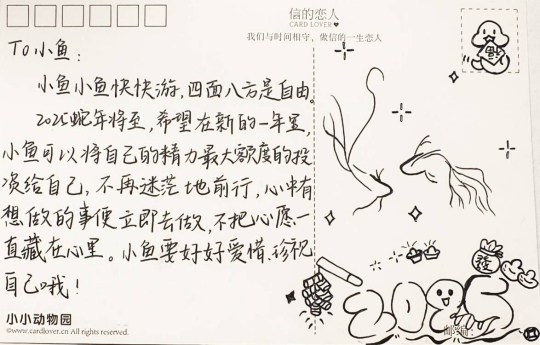 信的恋人
CARD LOVER
我们与时间相守，做信的一生恋人
TO小鱼：
小鱼小鱼快快游，四面八方是自由。
2025蛇年将至，希望在新的一年里，
小鱼可以将自己的精力最大额度的投
资给自己，不再迷茫地前行，心中有
想做的事便立即去做，不把心愿一
直藏在心里。小鱼要好好爱惜、珍视
自己哦！
發
2025
小小动物园
©www.cardlover.cn All rights reserved.